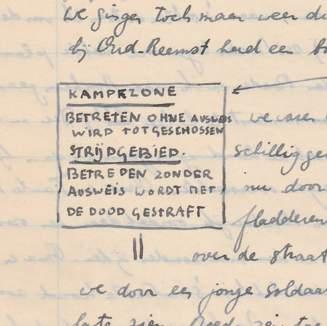 We gingen toch maar weer
bij Oud-Reemst hard een
KAMPKZONE
BETRETEN OHNE AUSWEIS
WIRD TOTGESCHOSSEN
STRIJDGEBIED.
BETREDEN ZONDER
AUSWEIS WORDT MET
DE DOOD GESTRAFT
we
schillig
nu door
fladderen
over de straat
we door een jonge soldaat